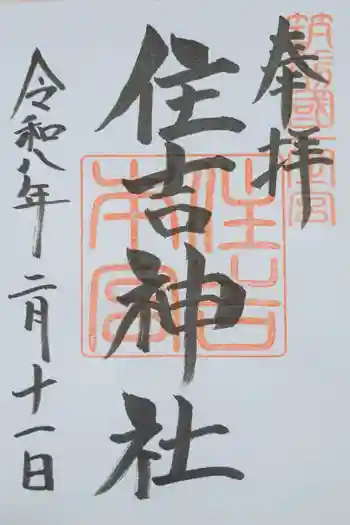 奉拝
筑前國一之宮
住吉神社
住吉本宮
令和八年二月十一日